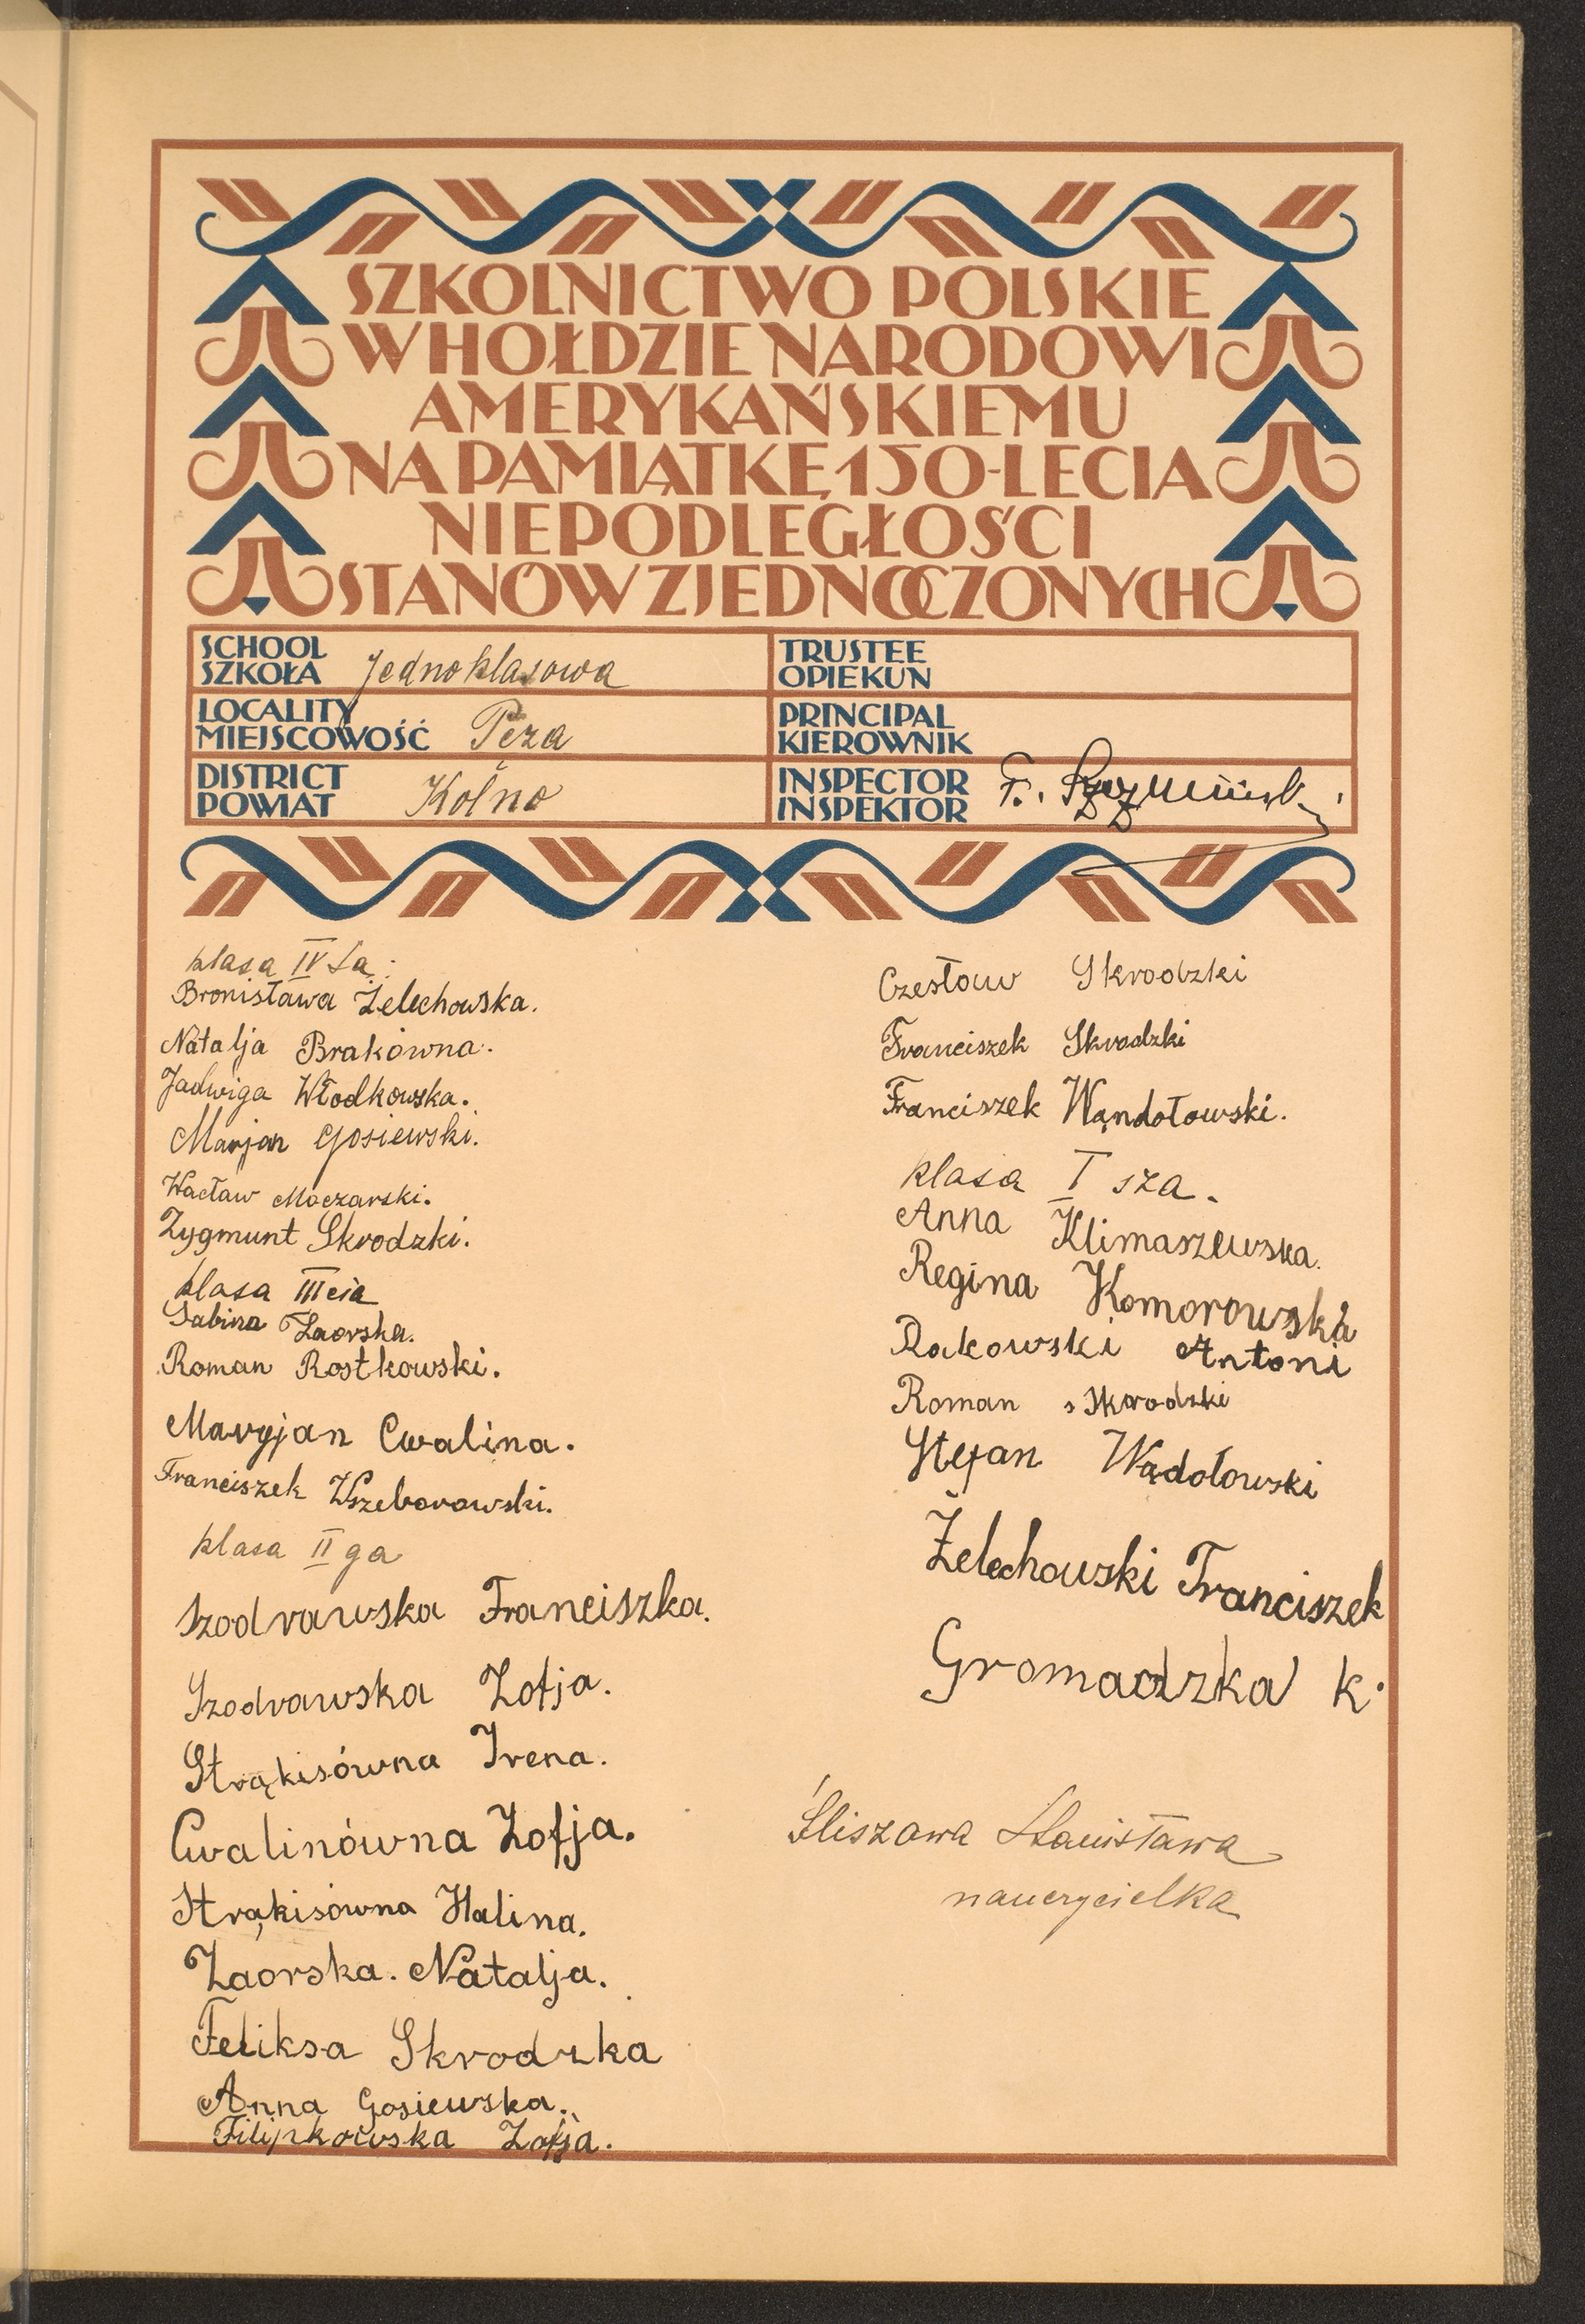 SZKOLNICTWO POLSKIE
W HOŁDZIE NARODOWI
AMERYKAŃSKIEMU
NA PAMIĄTKĘ 150-LECIA
NIEPODLEGŁOŚCI
STANÓW ZJEDNOCZONYCH
SCHOOL
SZKOŁA Jednoklasowa
LOCALITY
MIEJSCOWOŚĆ Peza
DISTRICT
POWIAT Kolno
TRUSTEE
OPIEKUN
PRINCIPAL
KIEROWNIK
INSPECTOR
INSPEKTOR F.
klasa IV ta:
Bronisława Żelechowska.
Natalja Brakówna.
Jadwiga Włodkowska.
Marjan Gosiewski.
Wacław Moczarski.
Zygmunt Skrodzki.
klasa III cia
Sabina Zaorska.
Roman Rostkowski.
Maryjan Cwalina.
Franciszek Wszeborowski.
klasa II ga
Szodrawska Franciszka.
Szodrawska Zofja.
Strąkisówna Irena.
Cwalinówna Zofja.
Strąkisówna Halina.
Zaorska. Natalja.
Feliksa Skrodzka
Anna Gosiewska.
Filipkowska Zofja.
Czesław Skrodzki
Franciszek Skrodzki
Franciszek Wąndołowski.
klasa I sza.
Anna Klimaszewska.
Regina Komorowska
Rakowski Antoni
Roman Skrodzki
Stefan Wądołowski
Żelechowski Franciszek
Gromadzka k.
Śliszowa Stanisława
nauczycielka